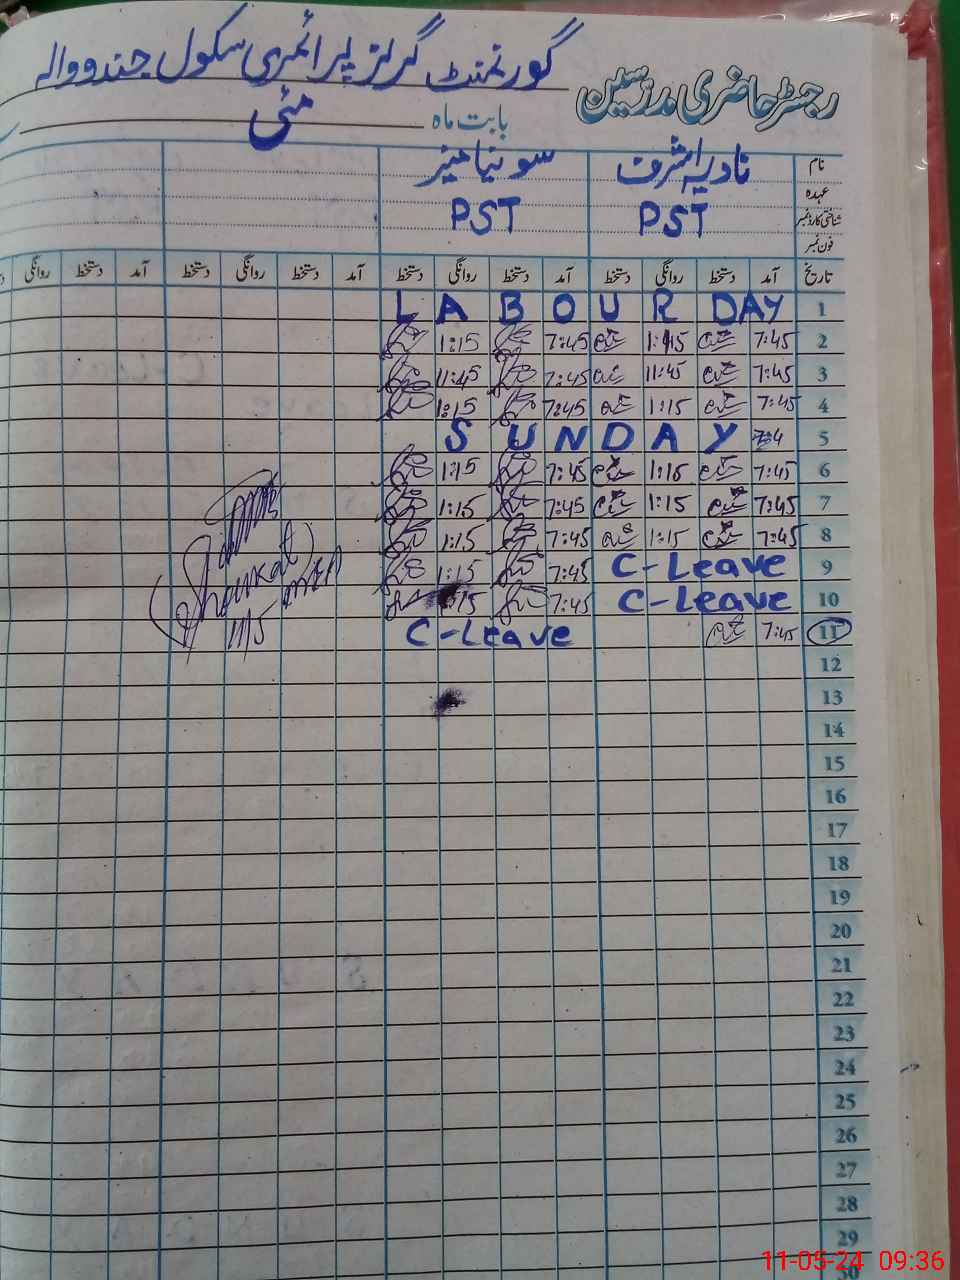 گورنمنٹ گرلز پرائمری سکول جندووالہ
رجسٹر حاضری مدرسین
بابت ماہ مئی
نام نادیہ اشرف سونیا منیر
عہدہ
شناختی کارڈ نمبر PST PST
فون نمبر
تاریخ آمد دستخط روانگی دستخط آمد دستخط روانگی دستخط آمد دستخط روانگی دستخط آمد دستخط روانگی
1 LABOUR DAY
2 7:45 1:15 7:45 1:15
3 7:45 11:45 7:45 11:45
4 7:45 1:15 7:45 1:15
5 SUNDAY
6 7:45 1:15 7:45 1:15
7 7:45 1:15 7:45 1:15
8 7:45 1:15 7:45 1:15
9 C-Leave 7:45 1:15
10 C-Leave 7:45 15
11 7:45 C-Leave
Shoukat
11/5
12
13
14
15
16
17
18
19
20
21
22
23
24
25
26
27
28
29
30
11-05-24 09:36